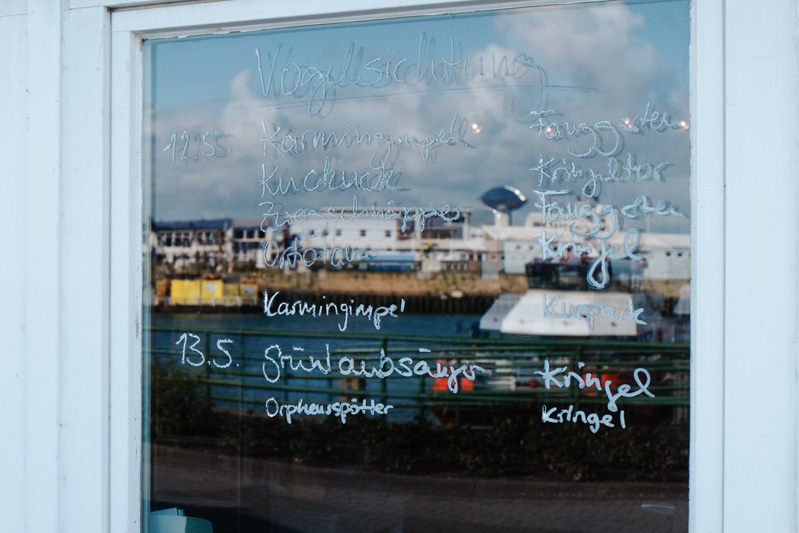 Vogelsichtung
12.5. Karmingimpel Fanggarten
Kuckuck Kringel
Zwergschnäpper Fanggarten
Ortolan Kringel
Karmingimpel Kurpark
13.5. Grünlaubsänger Kringel
Orpheusspötter Kringel